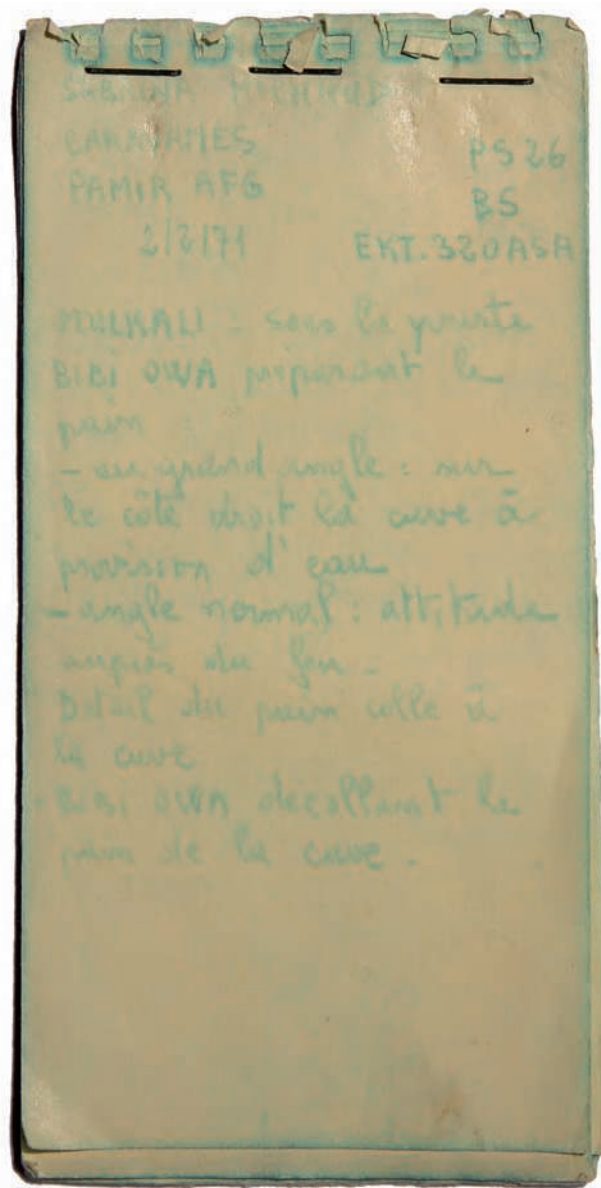 SABRINA MICHAUD
CARAVANES PS 26
PAMIR AFG BS
2/8/71 EKT.320ASA
MULKALI : sous la yourte
BIBI OWA préparant le
pain :
- au grand angle : sur
le côté droit la cuve à
provision d'eau
- angle normal : attitude
auprès du feu -
Détail du pain collé à
la cuve
BIBI OWA décollant le
pain de la cuve .